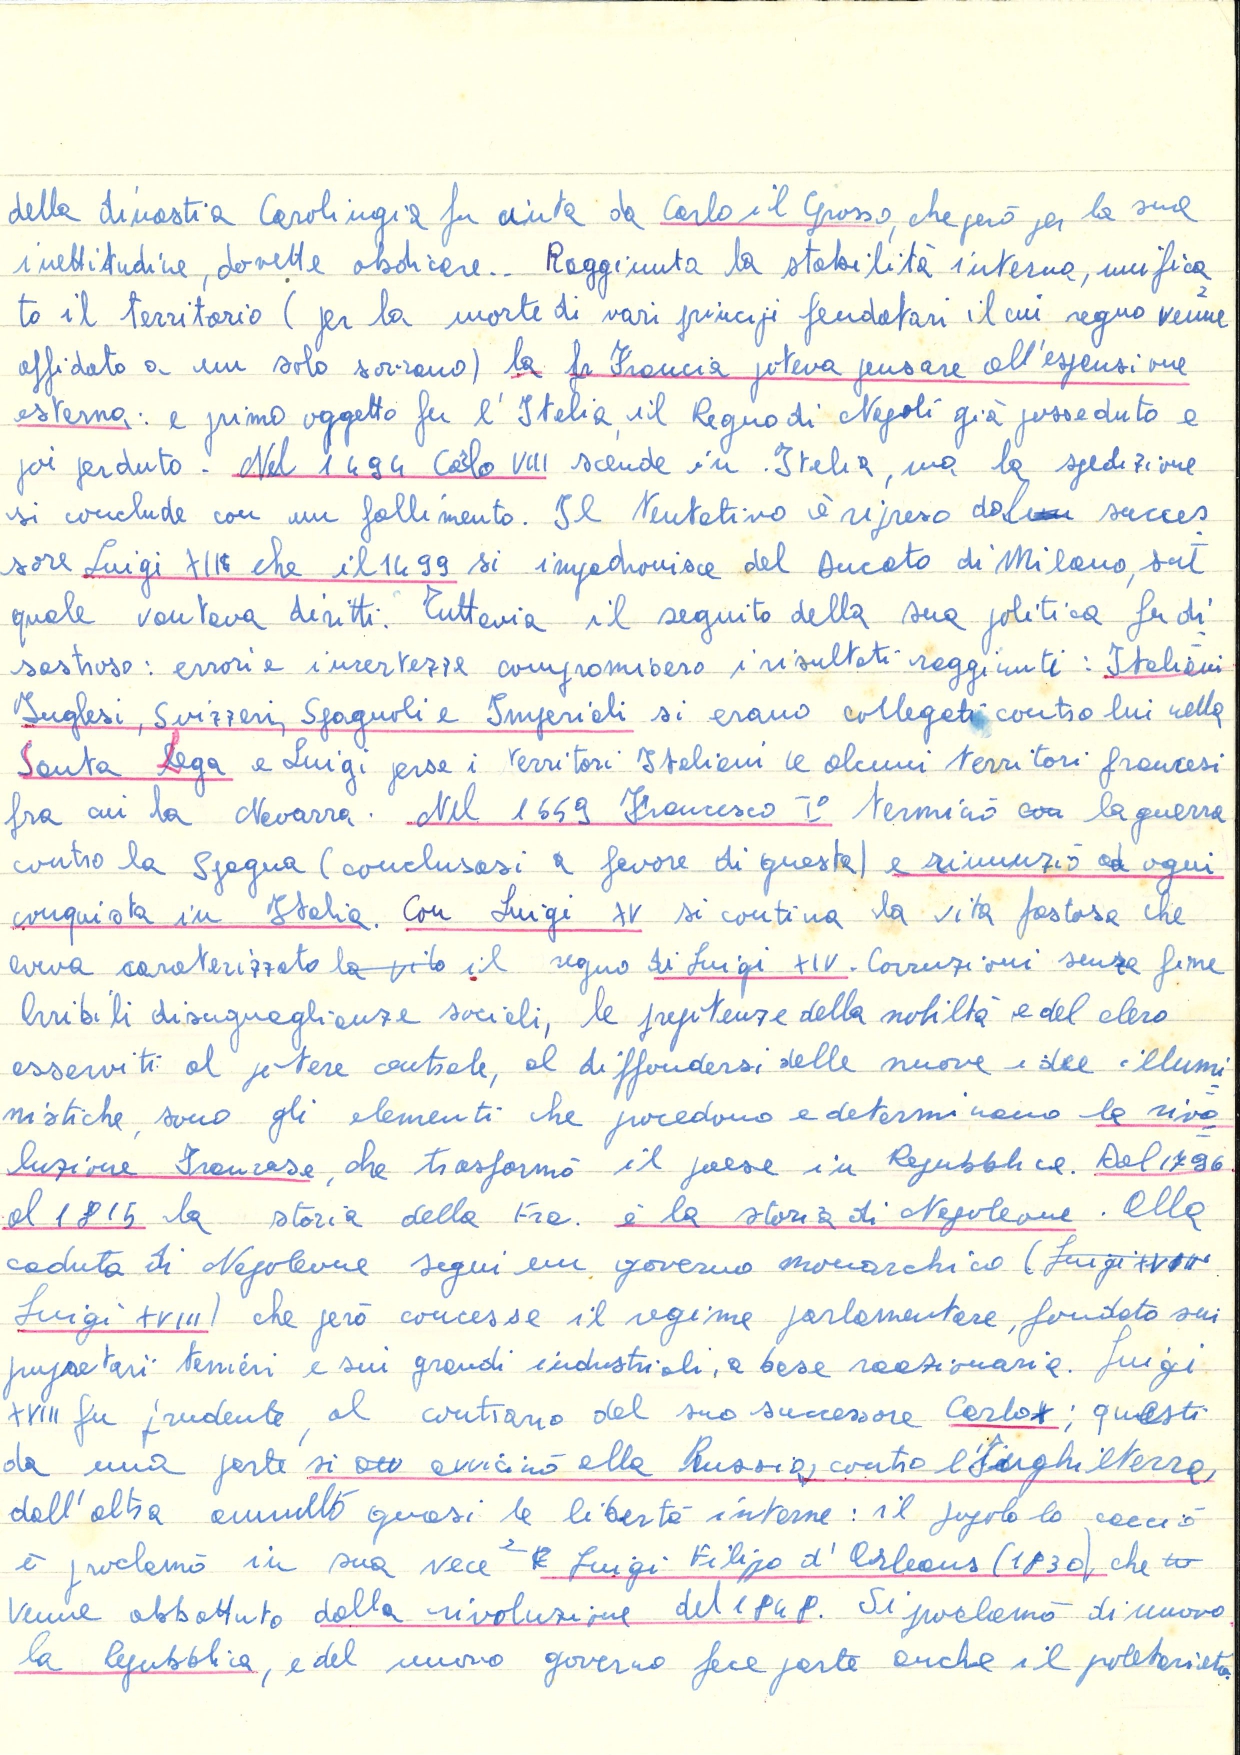 della dinastia Carolingia fu cinta da Carlo il Grosso, che però per la sua
inettitudine, dovette abdicare.. Raggiunta la stabilità interna, unifica
to il territorio (per la morte di vari principi feudatari il cui regno venne
affidato a un solo sovrano) la fr Francia poteva pensare all'espansione
esterna: e primo oggetto fu l'Italia, il Regno di Napoli già posseduto e
poi perduto. Nel 1494 Carlo VIII scende in Italia, ma la spedizione
si conclude con un fallimento. Il tentativo è ripreso dal succes
sore Luigi XII che il 1499 si impadronisce del Ducato di Milano, sul
quale vantava diritti. Tuttavia il seguito della sua politica fu di
sastroso: errori e incertezze compromisero i risultati raggiunti: Italiani
Inglesi, Svizzeri, Spagnoli e Imperiali si erano collegati contro lui nella
Santa Lega e Luigi perse i territori Italiani e alcuni territori francesi
fra cui la Navarra. Nel 1559 Francesco I° terminò con la guerra
contro la Spagna (conclusasi a favore di questa) e rinunziò ad ogni
conquista in Italia. Con Luigi XV si contina la vita fastosa che
aveva caraterizzato la vita il regno di Luigi XIV. Corruzioni senza fine
orribili disuguaglianze sociali, le prepotenze della nobiltà e del clero
asserviti al potere centrale, al diffondersi delle nuove idee illumi
nistiche, sono gli elementi che precedono e determinano la rivo
luzione Francese, che trasformò il paese in Repubblica. Dal 1796
al 1815 la storia della Fra. è la storia di Napoleone. Alla
caduta di Napoleone seguì un governo monarchico (Luigi XVIII
Luigi XVIII) che però concesse il regime parlamentare, fondato sui
propietari terrieri e sui grandi industriali, a base reazionaria. Luigi
XVIII fu prudente, al contrario del suo successore Carlo X; questi
da una parte si avvicinò alla Russia, contro l'Inghilterra,
dall'altra annullò quasi le libertà interne: il popolo lo cacciò
e proclamò in sua vece Luigi Filippo d'Orleans (1830) che
venne abbattuto dalla rivoluzione del 1848. Si proclamò di nuovo
la Repubblica, e del nuovo governo fece parte anche il proletariato.